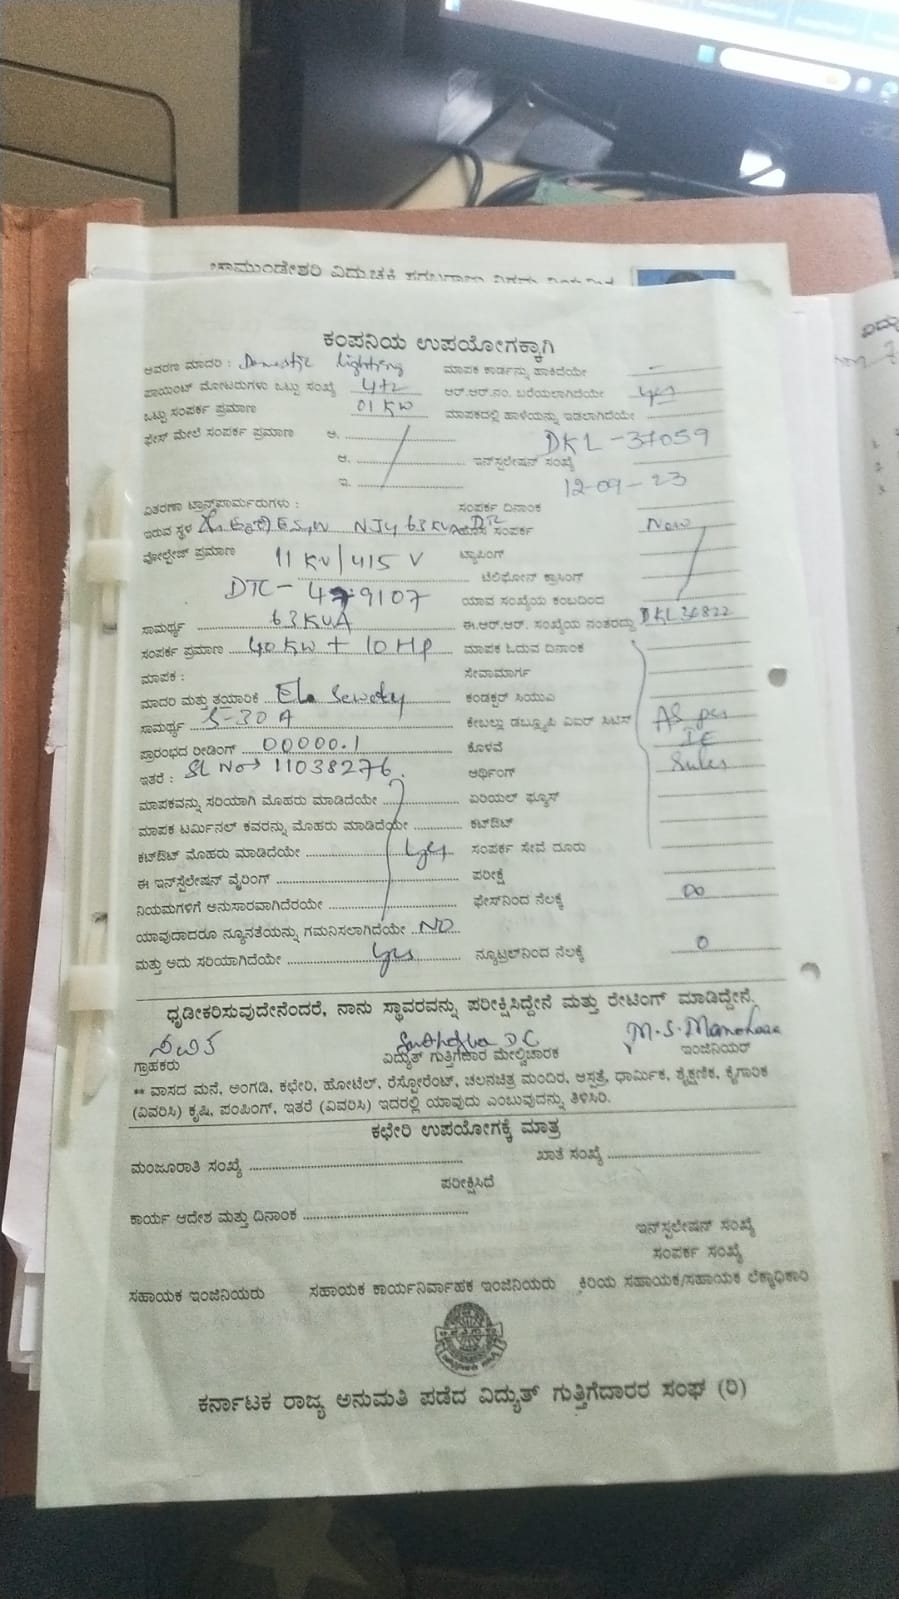 ಕಂಪನಿಯ ಉಪಯೋಗಕ್ಕಾಗಿ
ಆವರಣ ಮಾದರಿ : Domestic lighting ಮಾಪಕ ಕಾರ್ಡನ್ನು ಹಾಕಿದೆಯೇ
ಪಾಯಿಂಟ್ ಮೋಟರುಗಳು ಒಟ್ಟು ಸಂಖ್ಯೆ 4+2 ಆರ್.ಆರ್.ನಂ. ಬರೆಯಲಾಗಿದೆಯೇ yes
ಒಟ್ಟು ಸಂಪರ್ಕ ಪ್ರಮಾಣ 01 KW ಮಾಪಕದಲ್ಲಿ ಹಾಳೆಯನ್ನು ಇಡಲಾಗಿದೆಯೇ
ಫೇಸ್ ಮೇಲೆ ಸಂಪರ್ಕ ಪ್ರಮಾಣ ಅ. DKL-37059
ಆ. ಇನ್‌ಸ್ಟಲೇಷನ್ ಸಂಖ್ಯೆ
ಇ. 12-09-23
ವಿತರಣಾ ಟ್ರಾನ್ಸ್‌ಫಾರ್ಮರುಗಳು : ಸಂಪರ್ಕ ದಿನಾಂಕ
ಇರುವ ಸ್ಥಳ NJY 63 KVA DTC ಹೊಸ ಸಂಪರ್ಕ New
ವೋಲ್ಟೇಜ್ ಪ್ರಮಾಣ 11 KV/415 V ಟ್ಯಾಪಿಂಗ್
ಟೆಲಿಫೋನ್ ಕ್ರಾಸಿಂಗ್
DTC- 9107 ಯಾವ ಸಂಖ್ಯೆಯ ಕಂಬದಿಂದ
ಸಾಮರ್ಥ್ಯ 63 KVA ಈ.ಆರ್.ಆರ್. ಸಂಖ್ಯೆಯ ನಂತರದ್ದು DKL 36822
ಸಂಪರ್ಕ ಪ್ರಮಾಣ 40 KW + 10 HP ಮಾಪಕ ಓದುವ ದಿನಾಂಕ
ಮಾಪಕ : ಸೇವಾಮಾರ್ಗ
ಮಾದರಿ ಮತ್ತು ತಯಾರಿಕೆ ಕಂಡಕ್ಟರ್ ಸಿಯುಎ
ಸಾಮರ್ಥ್ಯ 5-30 A ಕೇಬಲ್ಲು ಡಬ್ಲ್ಯೂಪಿ ಎಐಆರ್ ಸಿಟಿಸ್ As per
ಪ್ರಾರಂಭದ ರೀಡಿಂಗ್ 00000.1 ಕೊಳವೆ IE
ಇತರೆ : SL No→ 11038276. ಅರ್ಥಿಂಗ್ Rules
ಮಾಪಕವನ್ನು ಸರಿಯಾಗಿ ಮೊಹರು ಮಾಡಿದೆಯೇ ಏರಿಯಲ್ ಫ್ಯೂಸ್
ಮಾಪಕ ಟರ್ಮಿನಲ್ ಕವರನ್ನು ಮೊಹರು ಮಾಡಿದೆಯೇ ಕಟ್‌ಔಟ್
ಕಟ್‌ಔಟ್ ಮೊಹರು ಮಾಡಿದೆಯೇ yes ಸಂಪರ್ಕ ಸೇವೆ ದೂರು
ಈ ಇನ್‌ಸ್ಟೆಲೇಷನ್ ವೈರಿಂಗ್ ಪರೀಕ್ಷೆ
ನಿಯಮಗಳಿಗೆ ಅನುಸಾರವಾಗಿದೆರಯೇ ಫೇಸ್‌ನಿಂದ ನೆಲಕ್ಕೆ ∞
ಯಾವುದಾದರೂ ನ್ಯೂನತೆಯನ್ನು ಗಮನಿಸಲಾಗಿದೆಯೇ NO
ಮತ್ತು ಅದು ಸರಿಯಾಗಿದೆಯೇ yes ನ್ಯೂಟ್ರಲ್‌ನಿಂದ ನೆಲಕ್ಕೆ 0
ಧೃಡೀಕರಿಸುವುದೇನೆಂದರೆ, ನಾನು ಸ್ಥಾವರವನ್ನು ಪರೀಕ್ಷಿಸಿದ್ದೇನೆ ಮತ್ತು ರೇಟಿಂಗ್ ಮಾಡಿದ್ದೇನೆ.
M.S.Manohara
ಗ್ರಾಹಕರು ವಿದ್ಯುತ್ ಗುತ್ತಿಗೆದಾರ ಮೇಲ್ವಿಚಾರಕ ಇಂಜಿನಿಯರ್
** ವಾಸದ ಮನೆ, ಅಂಗಡಿ, ಕಛೇರಿ, ಹೋಟೆಲ್, ರೆಸ್ಟೋರೆಂಟ್, ಚಲನಚಿತ್ರ ಮಂದಿರ, ಆಸ್ಪತ್ರೆ, ಧಾರ್ಮಿಕ, ಶೈಕ್ಷಣಿಕ, ಕೈಗಾರಿಕ
(ವಿವರಿಸಿ) ಕೃಷಿ, ಪಂಪಿಂಗ್, ಇತರೆ (ವಿವರಿಸಿ) ಇದರಲ್ಲಿ ಯಾವುದು ಎಂಬುವುದನ್ನು ತಿಳಿಸಿರಿ.
ಕಛೇರಿ ಉಪಯೋಗಕ್ಕೆ ಮಾತ್ರ
ಮಂಜೂರಾತಿ ಸಂಖ್ಯೆ ಖಾತೆ ಸಂಖ್ಯೆ
ಪರೀಕ್ಷಿಸಿದೆ
ಕಾರ್ಯ ಆದೇಶ ಮತ್ತು ದಿನಾಂಕ
ಇನ್‌ಸ್ಟಲೇಷನ್ ಸಂಖ್ಯೆ
ಸಂಪರ್ಕ ಸಂಖ್ಯೆ
ಸಹಾಯಕ ಇಂಜಿನಿಯರು ಸಹಾಯಕ ಕಾರ್ಯನಿರ್ವಾಹಕ ಇಂಜಿನಿಯರು ಕಿರಿಯ ಸಹಾಯಕ/ಸಹಾಯಕ ಲೆಕ್ಕಾಧಿಕಾರಿ
ಕರ್ನಾಟಕ ರಾಜ್ಯ ಅನುಮತಿ ಪಡೆದ ವಿದ್ಯುತ್ ಗುತ್ತಿಗೆದಾರರ ಸಂಘ (ರಿ)